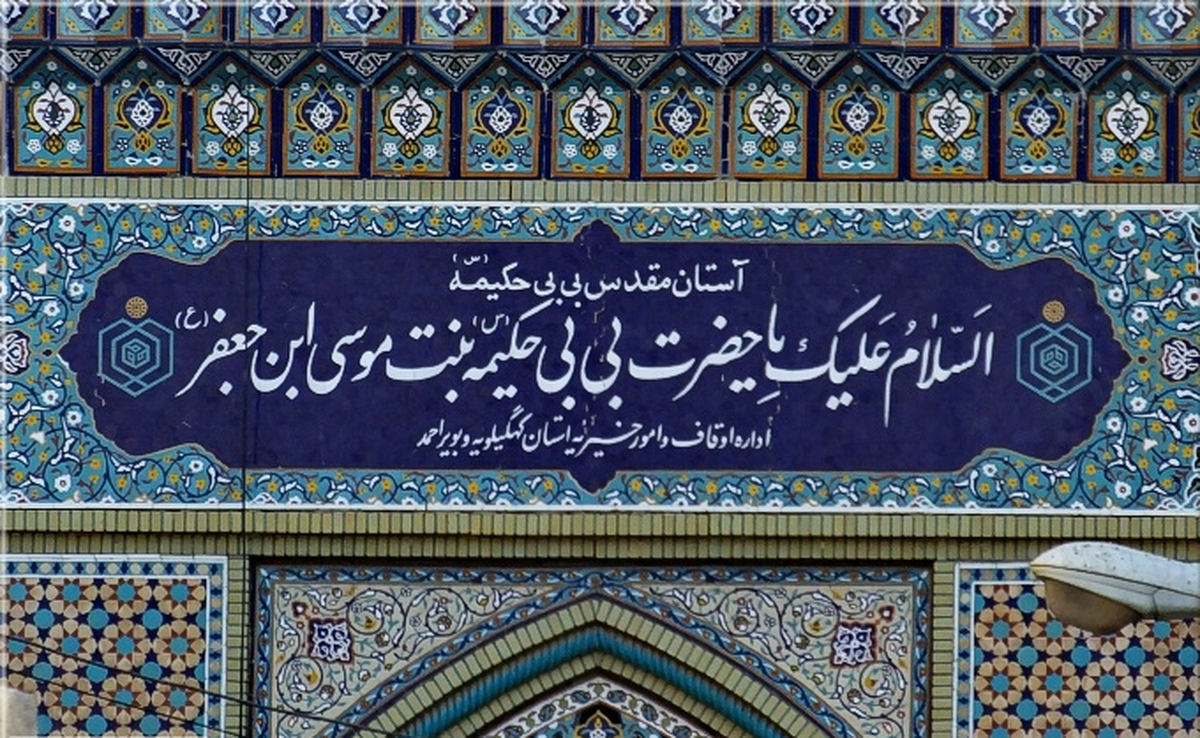 آستان مقدس بی بی حکیمه (س)
اَلسَّلامُ عَلَیکَ یا حضرت بی بی حکیمه (س) بنت موسی ابن جعفر (ع)
اداره اوقاف و امور خیریه استان کهگیلویه و بویراحمد